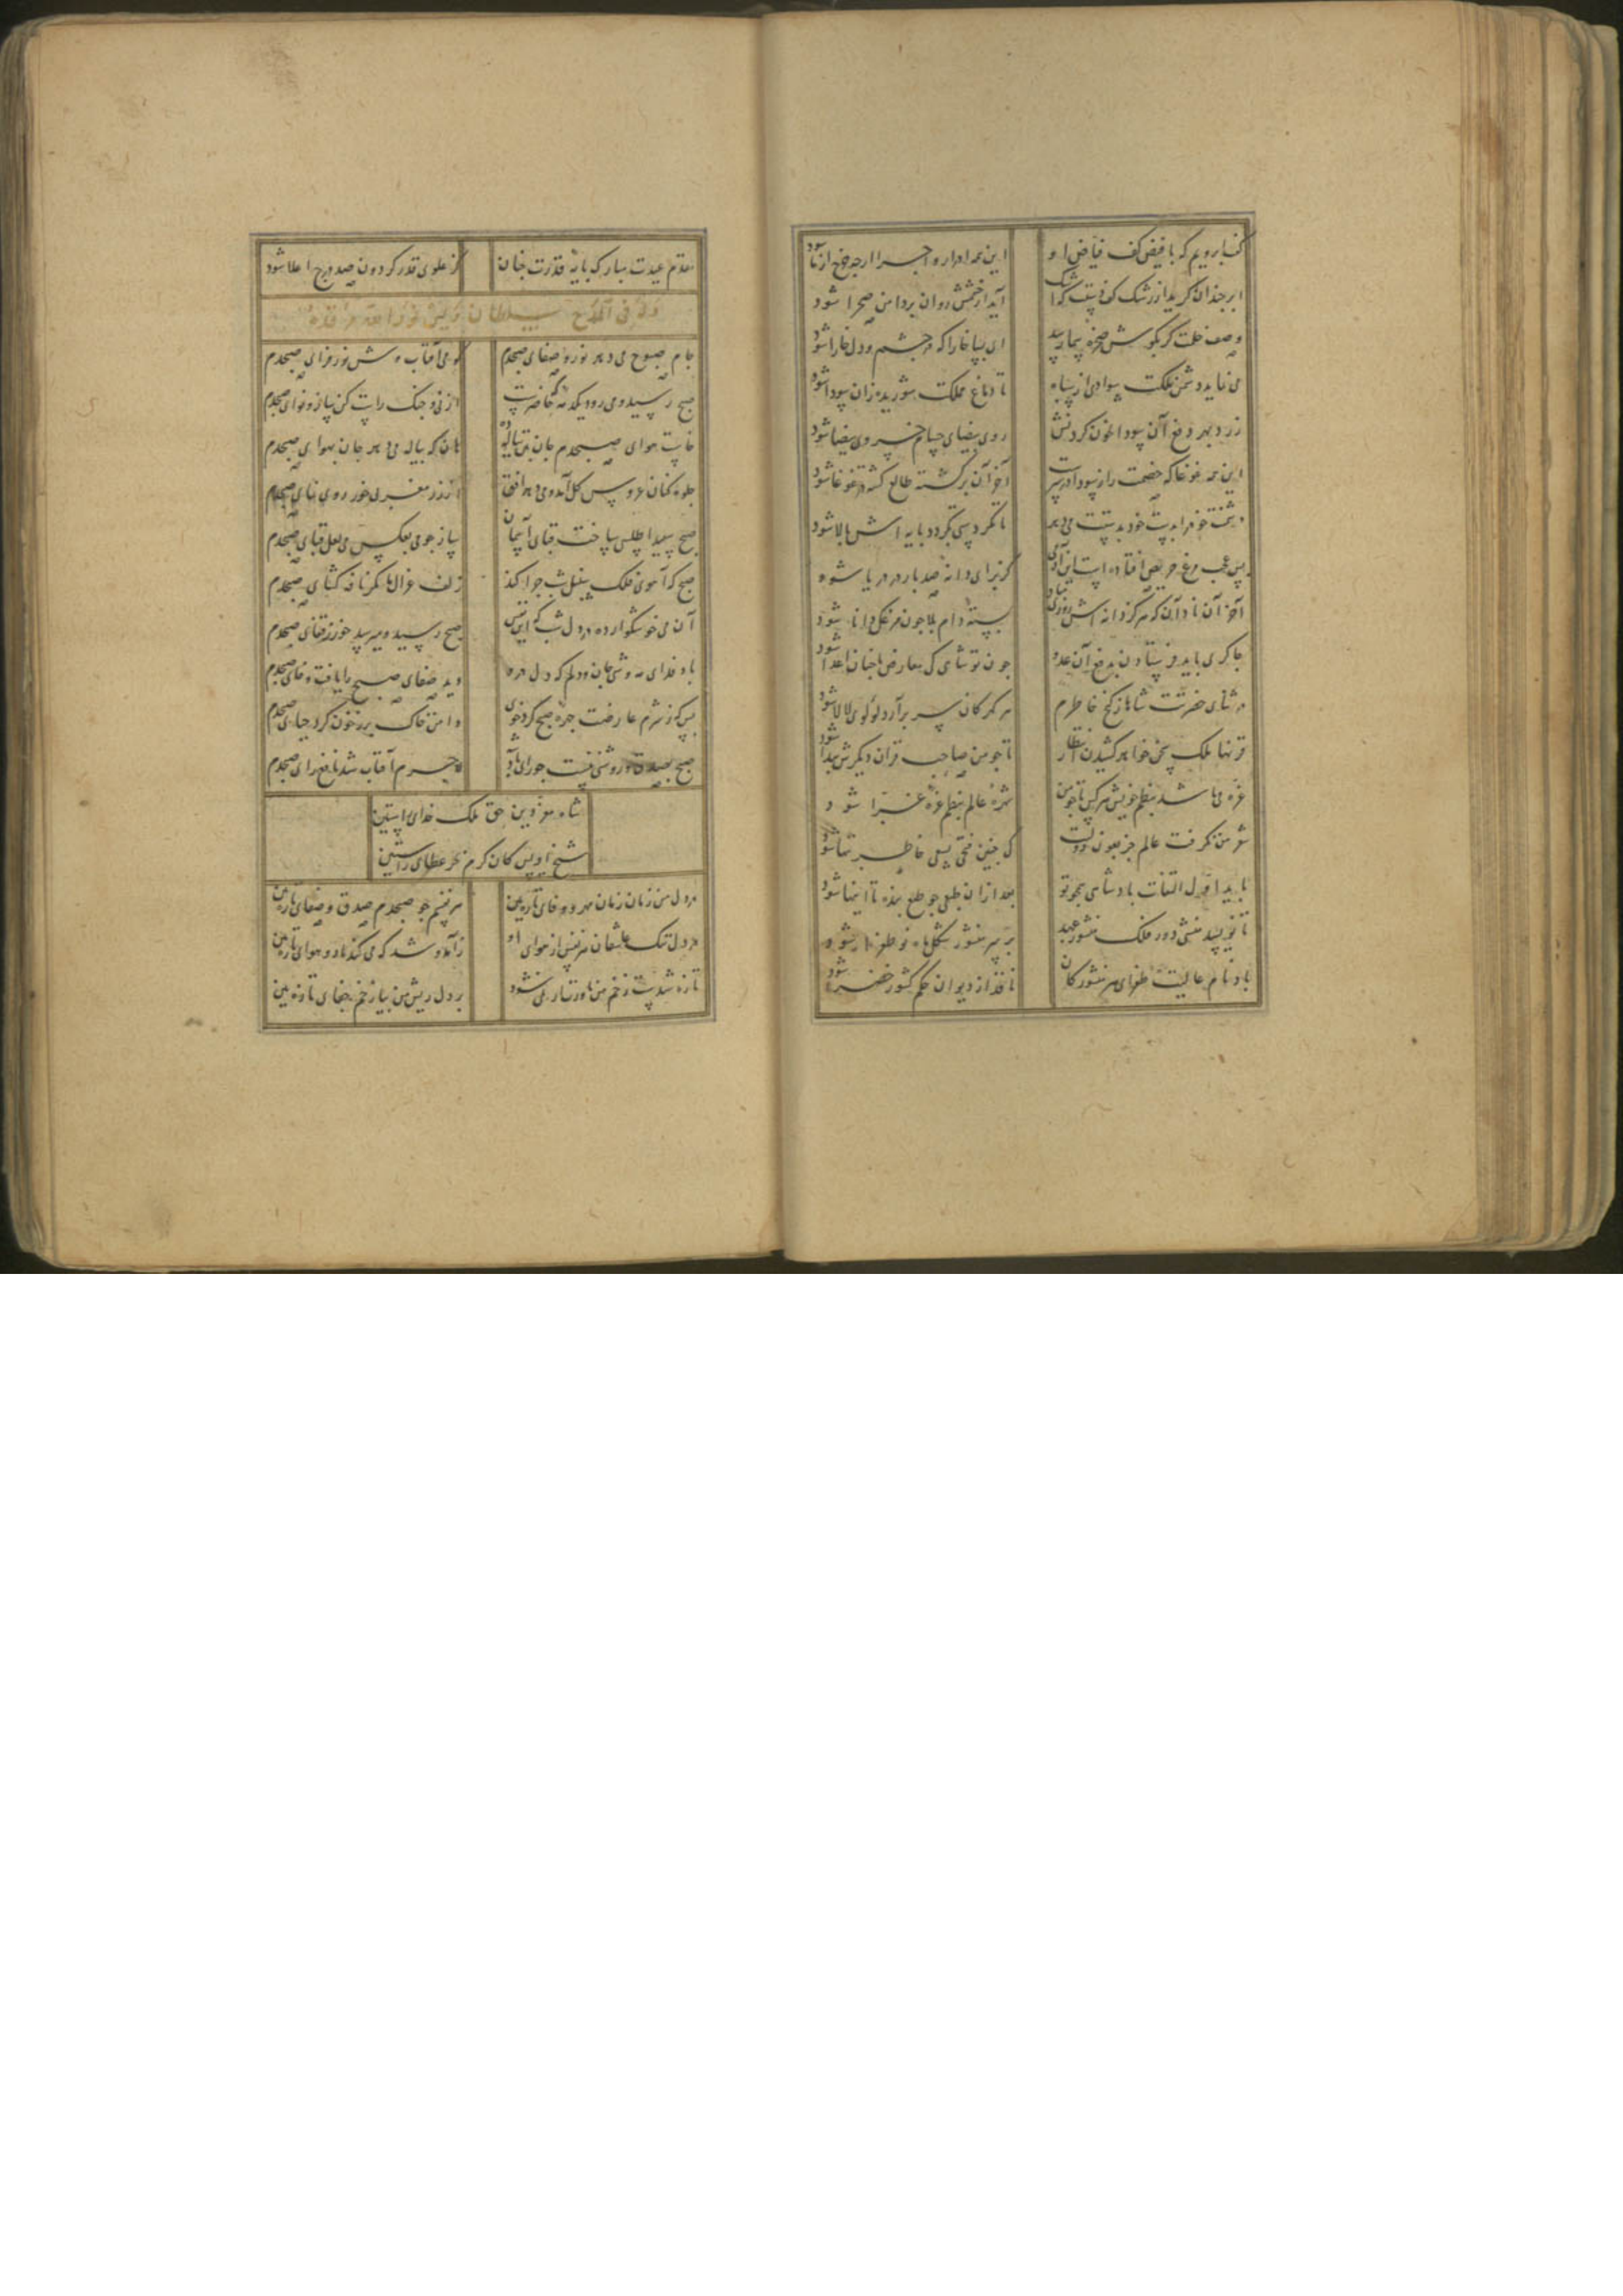 گفت ابر ویم که با فیض کف فیاض او این همه ادرار و اجرا از چه خرج از ما شود
ابر چندان گرید از رشک کف دستت که اشک آید از چشمش روان بر دامن صحرا شود
وصف خلقت گر بگوش صخره صما رسد ای بسا خارا که در چشم و دل خارا شود
می نماید دشمن ملکت سوادی از سپاه تا دماغ مملکت شوریده زان سودا شود
زرد بهر دفع آن سودا بخون گردنش روی بیضای حسام خسروی بیضا شود
این همه غوغا که خصمت را ز سودا در سرست آخر آن برگشته طالع کشته در غوغا شود
دشمنت خود را بدست خود بدستت می دهد تا نگردد پی نگردد پایه اش بالا شود
پس عجب مرغ حریص افتاده است این آدمی کز برای دانه صد بار در دریا شود
آخر آن نادان که هرگز دانه اش روزی مباد بسته دام بلا چون مرغک دانا شود
چاکری باید فرستادن بدفع آن عدو چون تو شاهی کی معارض با چنان اعدا شود
در ثنای حضرتت شاها ز کنج خاطرم هر گهر کان سر برآرد لولوی لالا شود
قرنها ملک سخن خواهد کشیدن انتظار تا چو من صاحب قران دیگرش پیدا شود
غره می باشد بنظم خویش هر کس تا چو من شهره عالم بنظم غره غرا شود
شعر من نگرفت عالم جز بعون دولتت کی چنین فتحی بسعی خاطر تنها شود
باید اول التفات پادشاهی همچو تو بعد از آن طبعی چو طبع بنده تا اینها شود
تا نویسد منشی دور فلک منشور عید بر سر منشور شکل ماه نو طغرا شود
باد نام عالیت طغرای هر منشور کان نافذ از دیوان حکم کشور خضرا شود
مقدم عیدت مبارک پایه قدرت چنان کز علوی قدر گردون صد درج اعلا شود
وله فی المدح سلطان اویس نور الله مرقده
جام صبوح می دهد نور و صفای صبحدم می آفتاب وش نور فزای صبحدم
صبح رسید و می رود از نی و چنگ راست کن ساز و نوای صبحدم
خاست هوای صبحدم جان بتن پیاله ده هان که پیاله می دهد جان بهوای صبحدم
جلوه کنان عروس گل آمد و می دهد افق از زر مغربی خور روی نمای صبحدم
صبح سپید اطلسی ساخت قبای آسمان ساز چو می بعکس می لعل قبای صبحدم
صبح که آهوی فلک سنبل شب چرا کند زلف غزال ما نگر نافه گشای صبحدم
آن می خوشگوار ده در دل شب که این نفس صبح رسید و میرسد خور ز قفای صبحدم
باد فدای مه وشی جان و دلم که در دل دید صفای صبح را یافت وفای صبحدم
بس که ز شرم عارضت چهره صبح کرد خوی دامن خاک پر ز خون کرد حیای صبحدم
صبح بصدق و روشنی نیست چو رای پادشا چرم آفتاب شد تابع رای صبحدم
شاه معز دین حق ملک خدای راستین
شیخ اویس کان کرم بحر عطای راستین
در دل من زمان زمان مهر و وفای تازه بین هر نفسم چو صبحدم صدق و صفای تازه بین
در دل تنگ عاشقان هر نفس از هوای او زآمد و شد که می کند باد و هوای تازه بین
تازه شدست زخم من بر دل ریش من بیا زخم جفای تازه بین